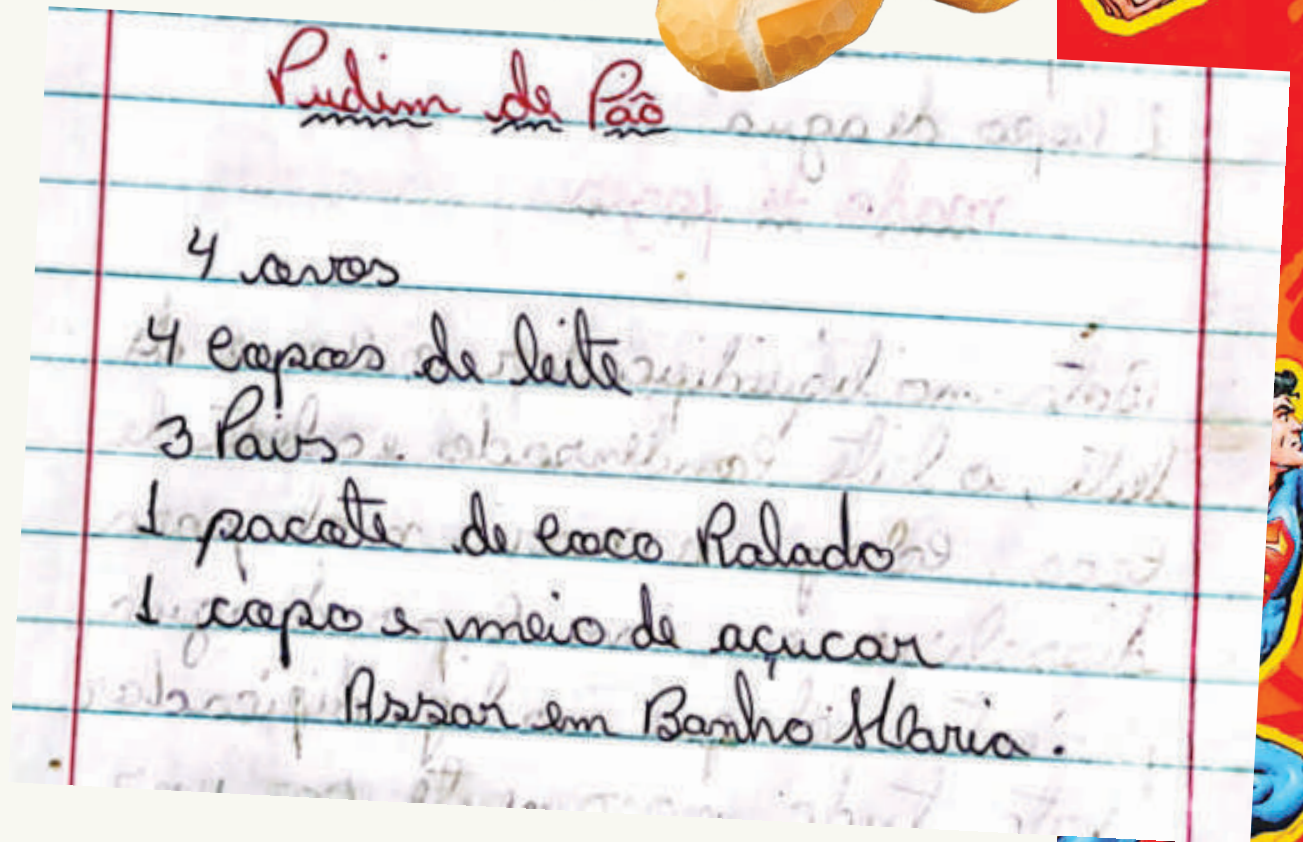 Pudim de Pão
4 ovos
4 copos de leite
3 Pais
1 pacote de coco Ralado
1 copo e meio de açucar
Assar em Banho Maria.